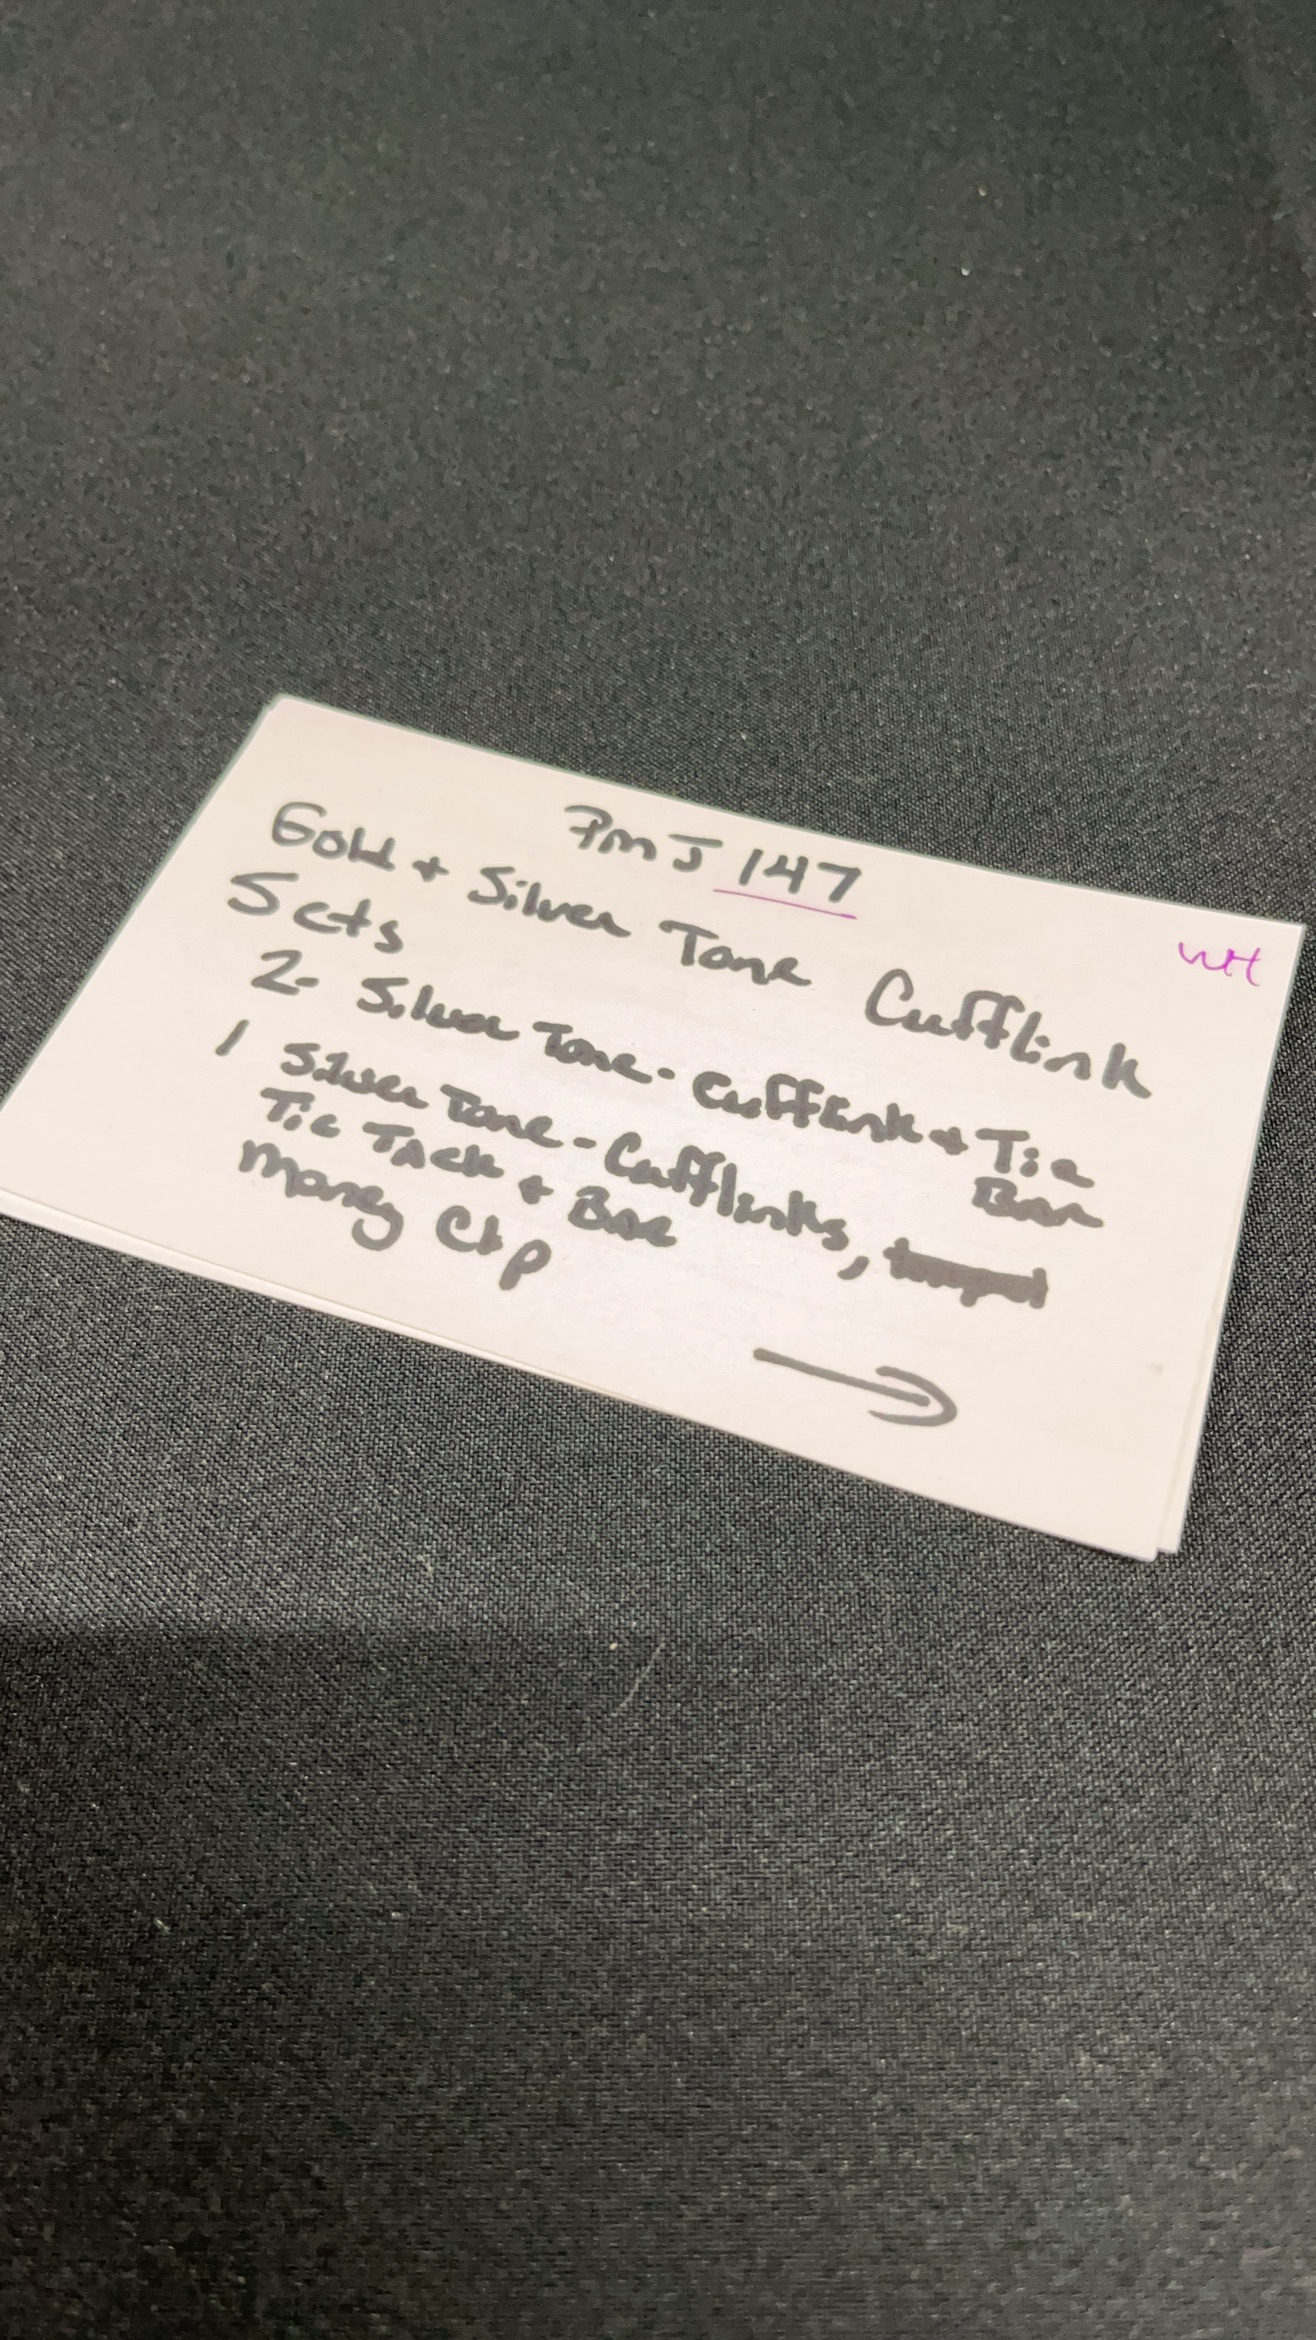 PmJ 147
WH
Gold + Silver Tone Cufflink
Sets
2- Silver Tone - Cufflink + Tie
Bar
1 Silver Tone - Cufflinks,
Tie TAck + Bar
Money Clip